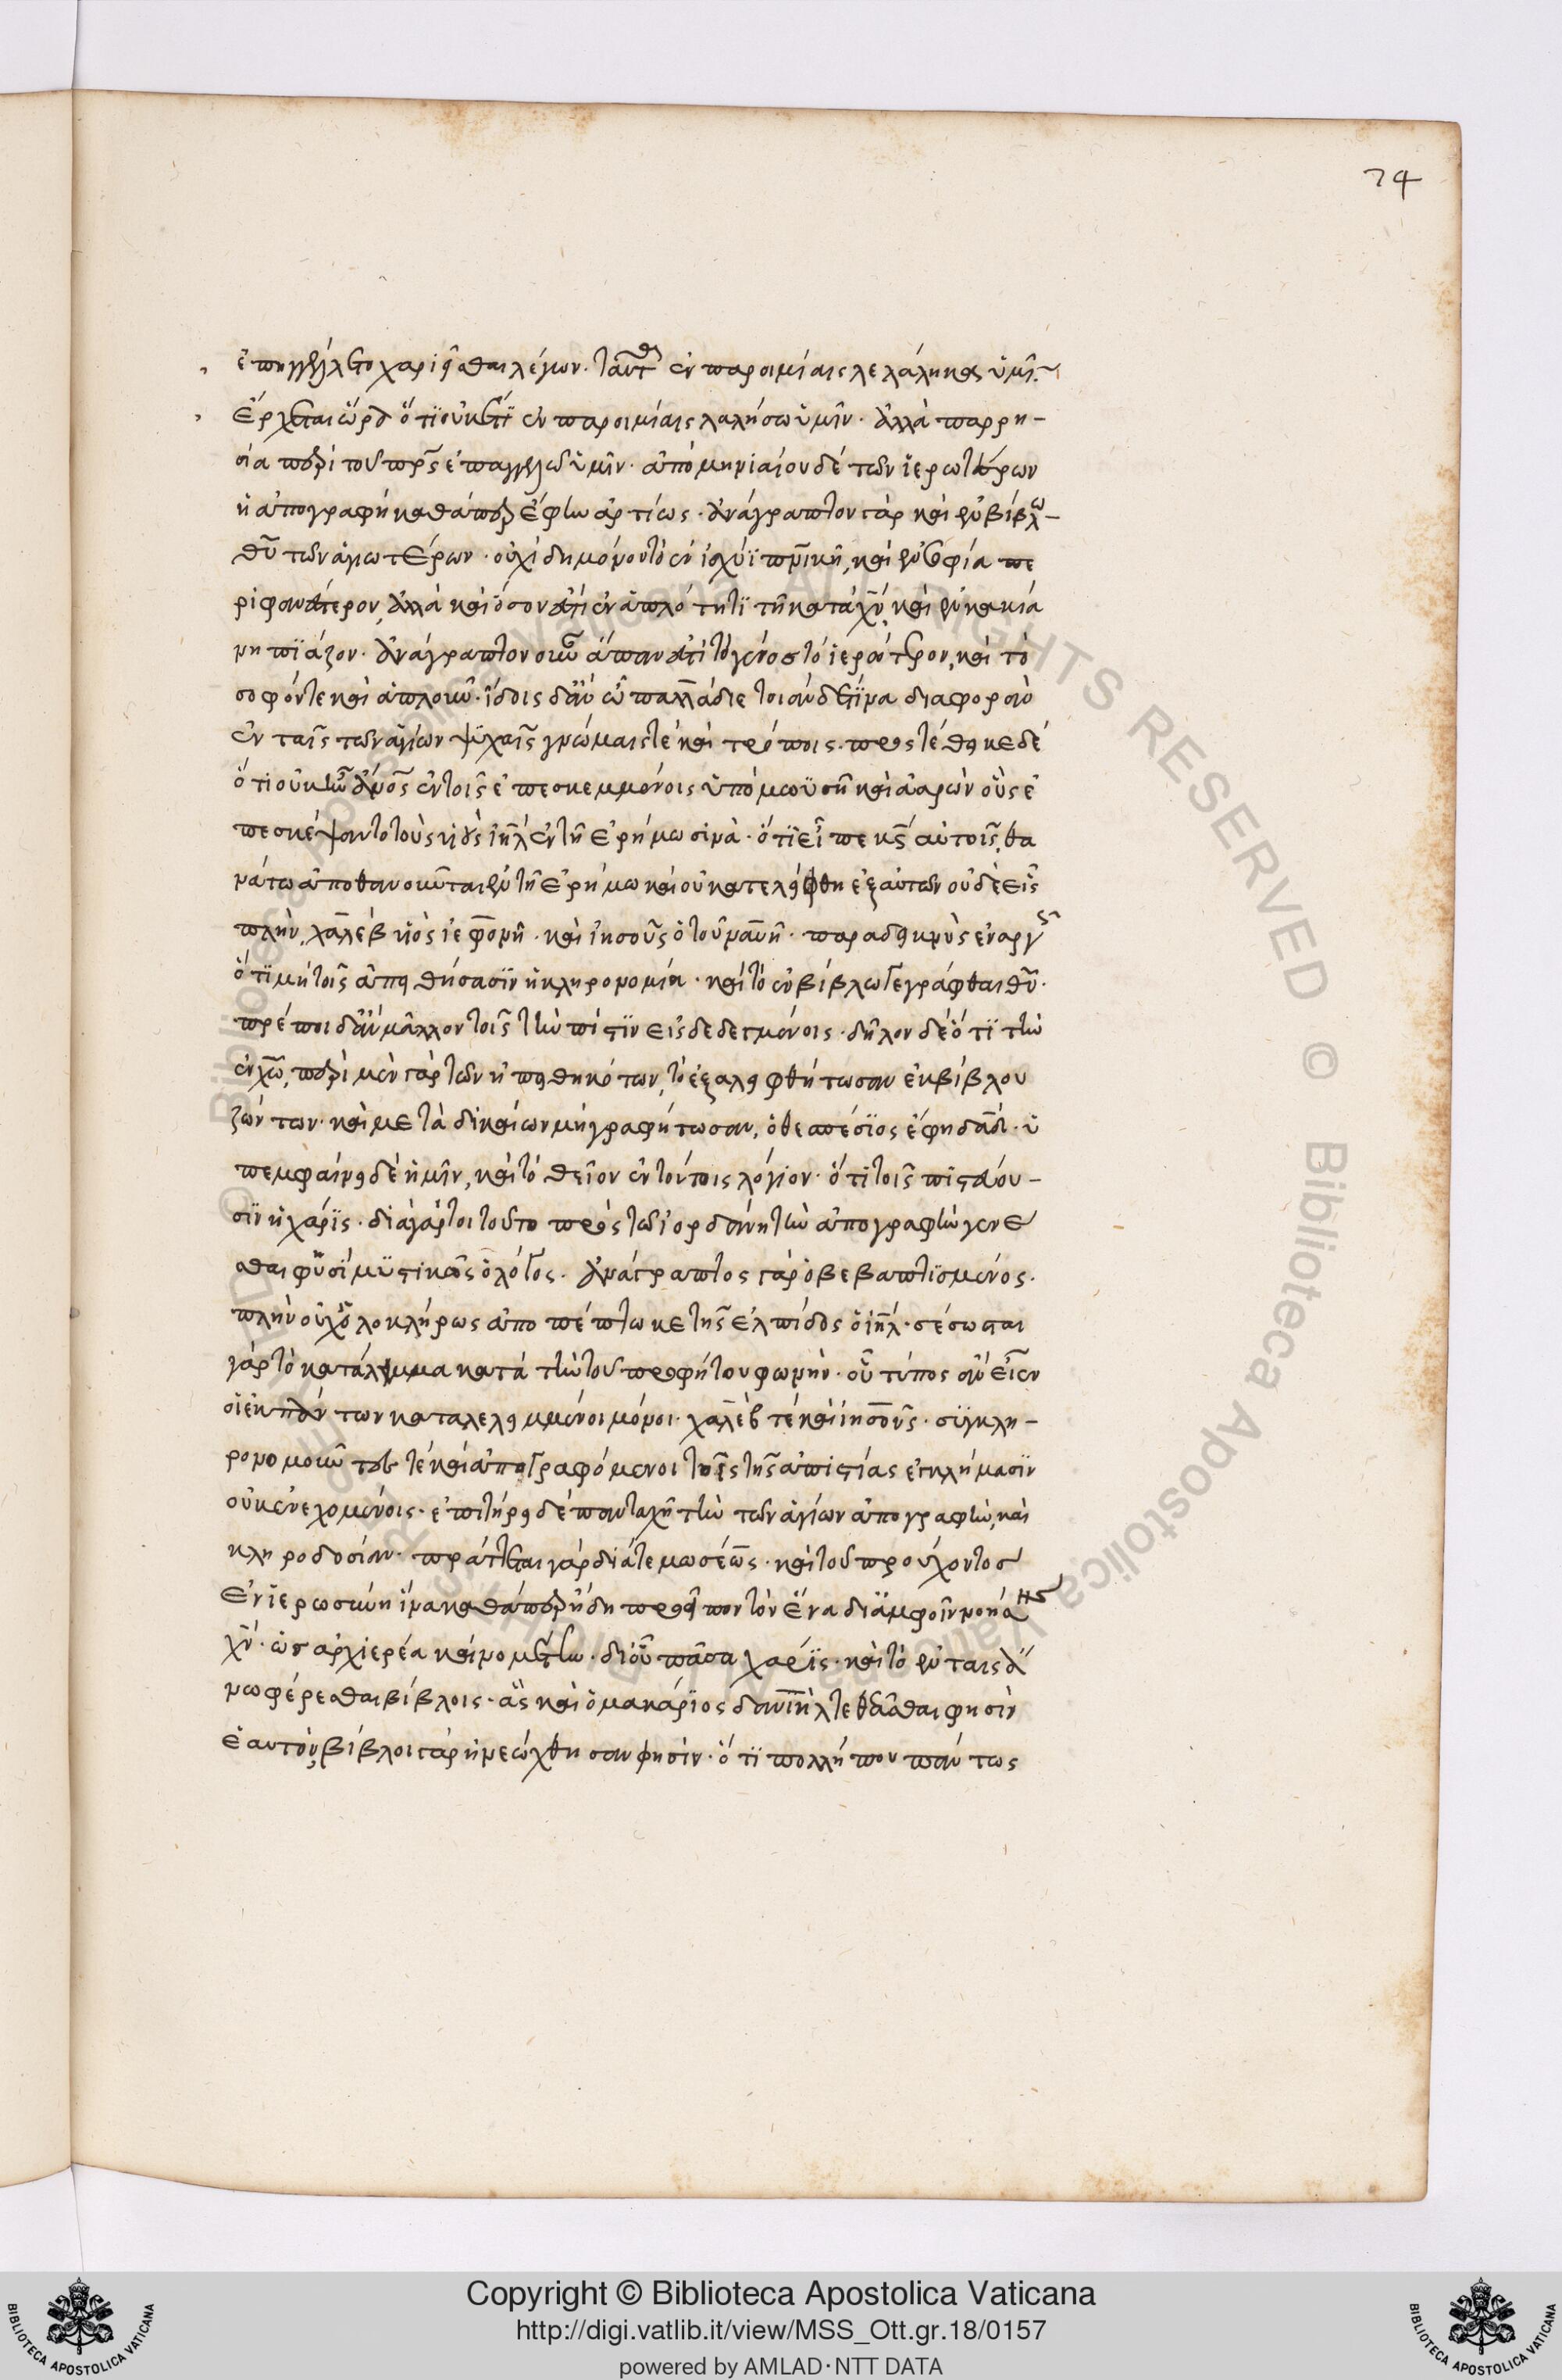 74
ἐπηγγείλετο χαριεῖσθαι λέγων· ταῦτα ἐν παροιμίαις λελάληκα ὑμῖν·
ἔρχεται ὥρα ὅτι οὐκέτι ἐν παροιμίαις λαλήσω ὑμῖν· ἀλλὰ παρρη-
σία περὶ τοῦ πρς ἐπαγγελῶ ὑμῖν· ἀπομηνιαίου δὲ τῶν ἱερωτάτων
ἡ ἀπογραφὴ καθάπερ ἔφην ἀρτίως· ἀνάγραπτον γὰρ καὶ ἐν βίβλω
θῦ τῶν ἁγιωτέρων· οὐχὶ δὴ μόνον τὸ ἐν ἰσχύϊ πνικῆ, καὶ ἐν σοφία πε
ριφανέστερον, ἀλλὰ καὶ ὅσον ἐστὶ ἐν ἁπλότητι τῆ κατὰ χν, καὶ ἐν κακία
νηπιάζον· ἀνάγραπτον οὖν ἅπαν ἐστὶ τὸ γένος τὸ ἱερώτατον, καὶ τὸ
σοφόν τε καὶ ἁπλοῦν· ἴδοις δ' ἂν ὦ παλλάδιε τοιάνδε τινα διαφορὰν
ἐν ταῖς τῶν ἁγίων ψυχαῖς γνώμαις τε καὶ τρόποις· προστέθεικε δὲ
ὅτι οὐκ ἦν ἄνος ἐν τοῖς ἐπεσκεμμένοις ὑπὸ μωϋσῆ καὶ ἀαρὼν οὓς ἐ
πεσκέψαντο τοὺς υἱοὺς ἰηλ ἐν τῆ ἐρήμω σινᾶ· ὅτι εἶπε κς αὐτοῖς, θα
νάτω ἀποθανοῦνται ἐν τῆ ἐρήμω καὶ οὐ κατελείφθη ἐξ αὐτῶν οὐδὲ εἷς
πλὴν, χάλεβ υἱὸς ἰεφονῆ· καὶ ἰησοῦς ὁ τοῦ ναυῆ· παραδεικνὺς ἐναργῶς
ὅτι μὴ τοῖς ἀπειθήσασιν ἡ κληρονομία· καὶ τὸ ἐν βίβλω γεγράφθαι θῦ·
πρέποι δ' ἂν μᾶλλον τοῖς τὴν πίστιν εἰσδεδεγμένοις· δῆλον δὲ ὅτι τὴν
ἐν χω, περὶ μὲν γὰρ τῶν ἠπειθηκότων, τὸ ἐξαλειφθήτωσαν ἐκ βίβλου
ζώντων· καὶ μετὰ δικαίων μὴ γραφήτωσαν, ὁ θεσπέσιος ἔφη δαδ· ὑ
πεμφαίνει δὲ ἡμῖν, καὶ τὸ θεῖον ἐν τούτοις λόγιον· ὅτι τοῖς πιστεύου-
σιν ἡ χάρις· διὰ γάρ τοι τοῦτο πρὸς τῶ ἰορδάνη τὴν ἀπογραφὴν γενέ
σθαι φησὶ μυστικῶς ὁ λόγος· ἀνάγραπτος γὰρ ὁ βεβαπτισμένος·
πλὴν οὐχ ὁλοκλήρως ἀποπέπτωκε τῆς ἐλπίδος ὁ ἰηλ· σέσωσται
γὰρ τὸ κατάλειμμα κατὰ τὴν τοῦ προφήτου φωνήν· οὗ τύπος ἂν εἶεν
οἱ ἐκ πάντων καταλελειμμένοι μόνοι· χάλεβ τε καὶ ἰησοῦς· συγκλη-
ρονομοῦντες τε καὶ ἀπογραφόμενοι τοῖς τῆς ἀπιστίας ἐγκλήμασιν
οὐκ ἐνεχομένοις· ἐπιτήρει δὲ πανταχῆ τὴν τῶν ἁγίων ἀπογραφὴν, καὶ
κληροδοσίαν· πράττεται γὰρ διά τε μωσέως· καὶ τοῦ προύχοντος
ἐν ἱερωσύνη ἵνα καθάπερ ἤδη προεῖπον τὸν ἕνα δι' ἀμφοῖν νοήσης
χν· ὡς ἀρχιερέα καὶ νομοθέτην· δι' οὗ πᾶσα χάρις· καὶ τὸ ἐν ταῖς ἄ
νω φέρεσθαι βίβλοις· ἃς καὶ ὁ μακάριος δανιὴλ τεθεᾶσθαι φησὶν
ἑαυτόν, βίβλοι γὰρ ἠνεώχθησαν φησίν· ὅτι πολλή που πάντως
Copyright © Biblioteca Apostolica Vaticana
http://digi.vatlib.it/view/MSS_Ott.gr.18/0157
powered by AMLAD·NTT DATA